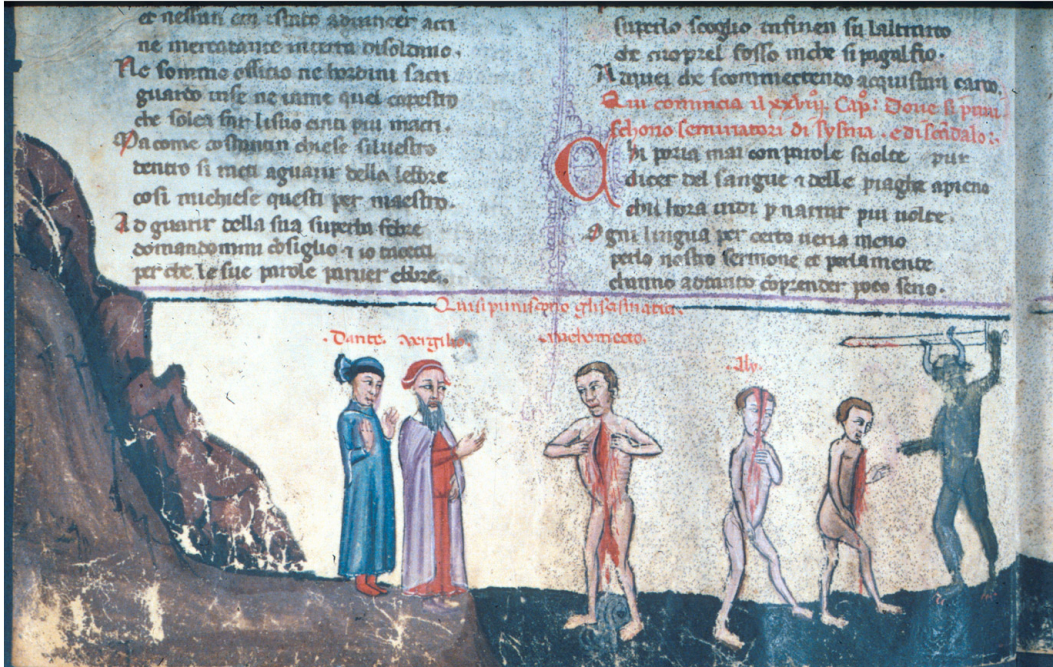 ne mercatante in terra disoldano.
Ne sommo officio ne hordini sacri
guardo in se ne in me quel capestro
che solea far li suo cinti piu macri.
Ma come costantin chiese siluestro
dentro si rati aguarir della lebbre
cosi mi chiese questi per maestro.
Ad guarir della sua superba febre
domandommi cósiglio ⁊ io tacetti
per che le sue parole paruer ebbre.
su per lo scoglio infinen su laltrarco
che cuopre l fosso in che si paga l fio.
A quei che scommectendo acquistan carco.
Qui comincia il xxviij. Cap̊: Doue si puni
schono seminatori di sysma. e di scandalo:
Chi poria mai con parole sciolte pur
dicer del sangue ⁊ delle piaghe apieno
chi hora uidi p narrar piu uolte.
Ogni lingua per certo ueria meno
perlo nostro sermone et perla mente
channo a tanto cóprender poco seno.
Qui si puniscono gli scismatici.
.Dante. .vergilio.
.machometto.
.Aly.